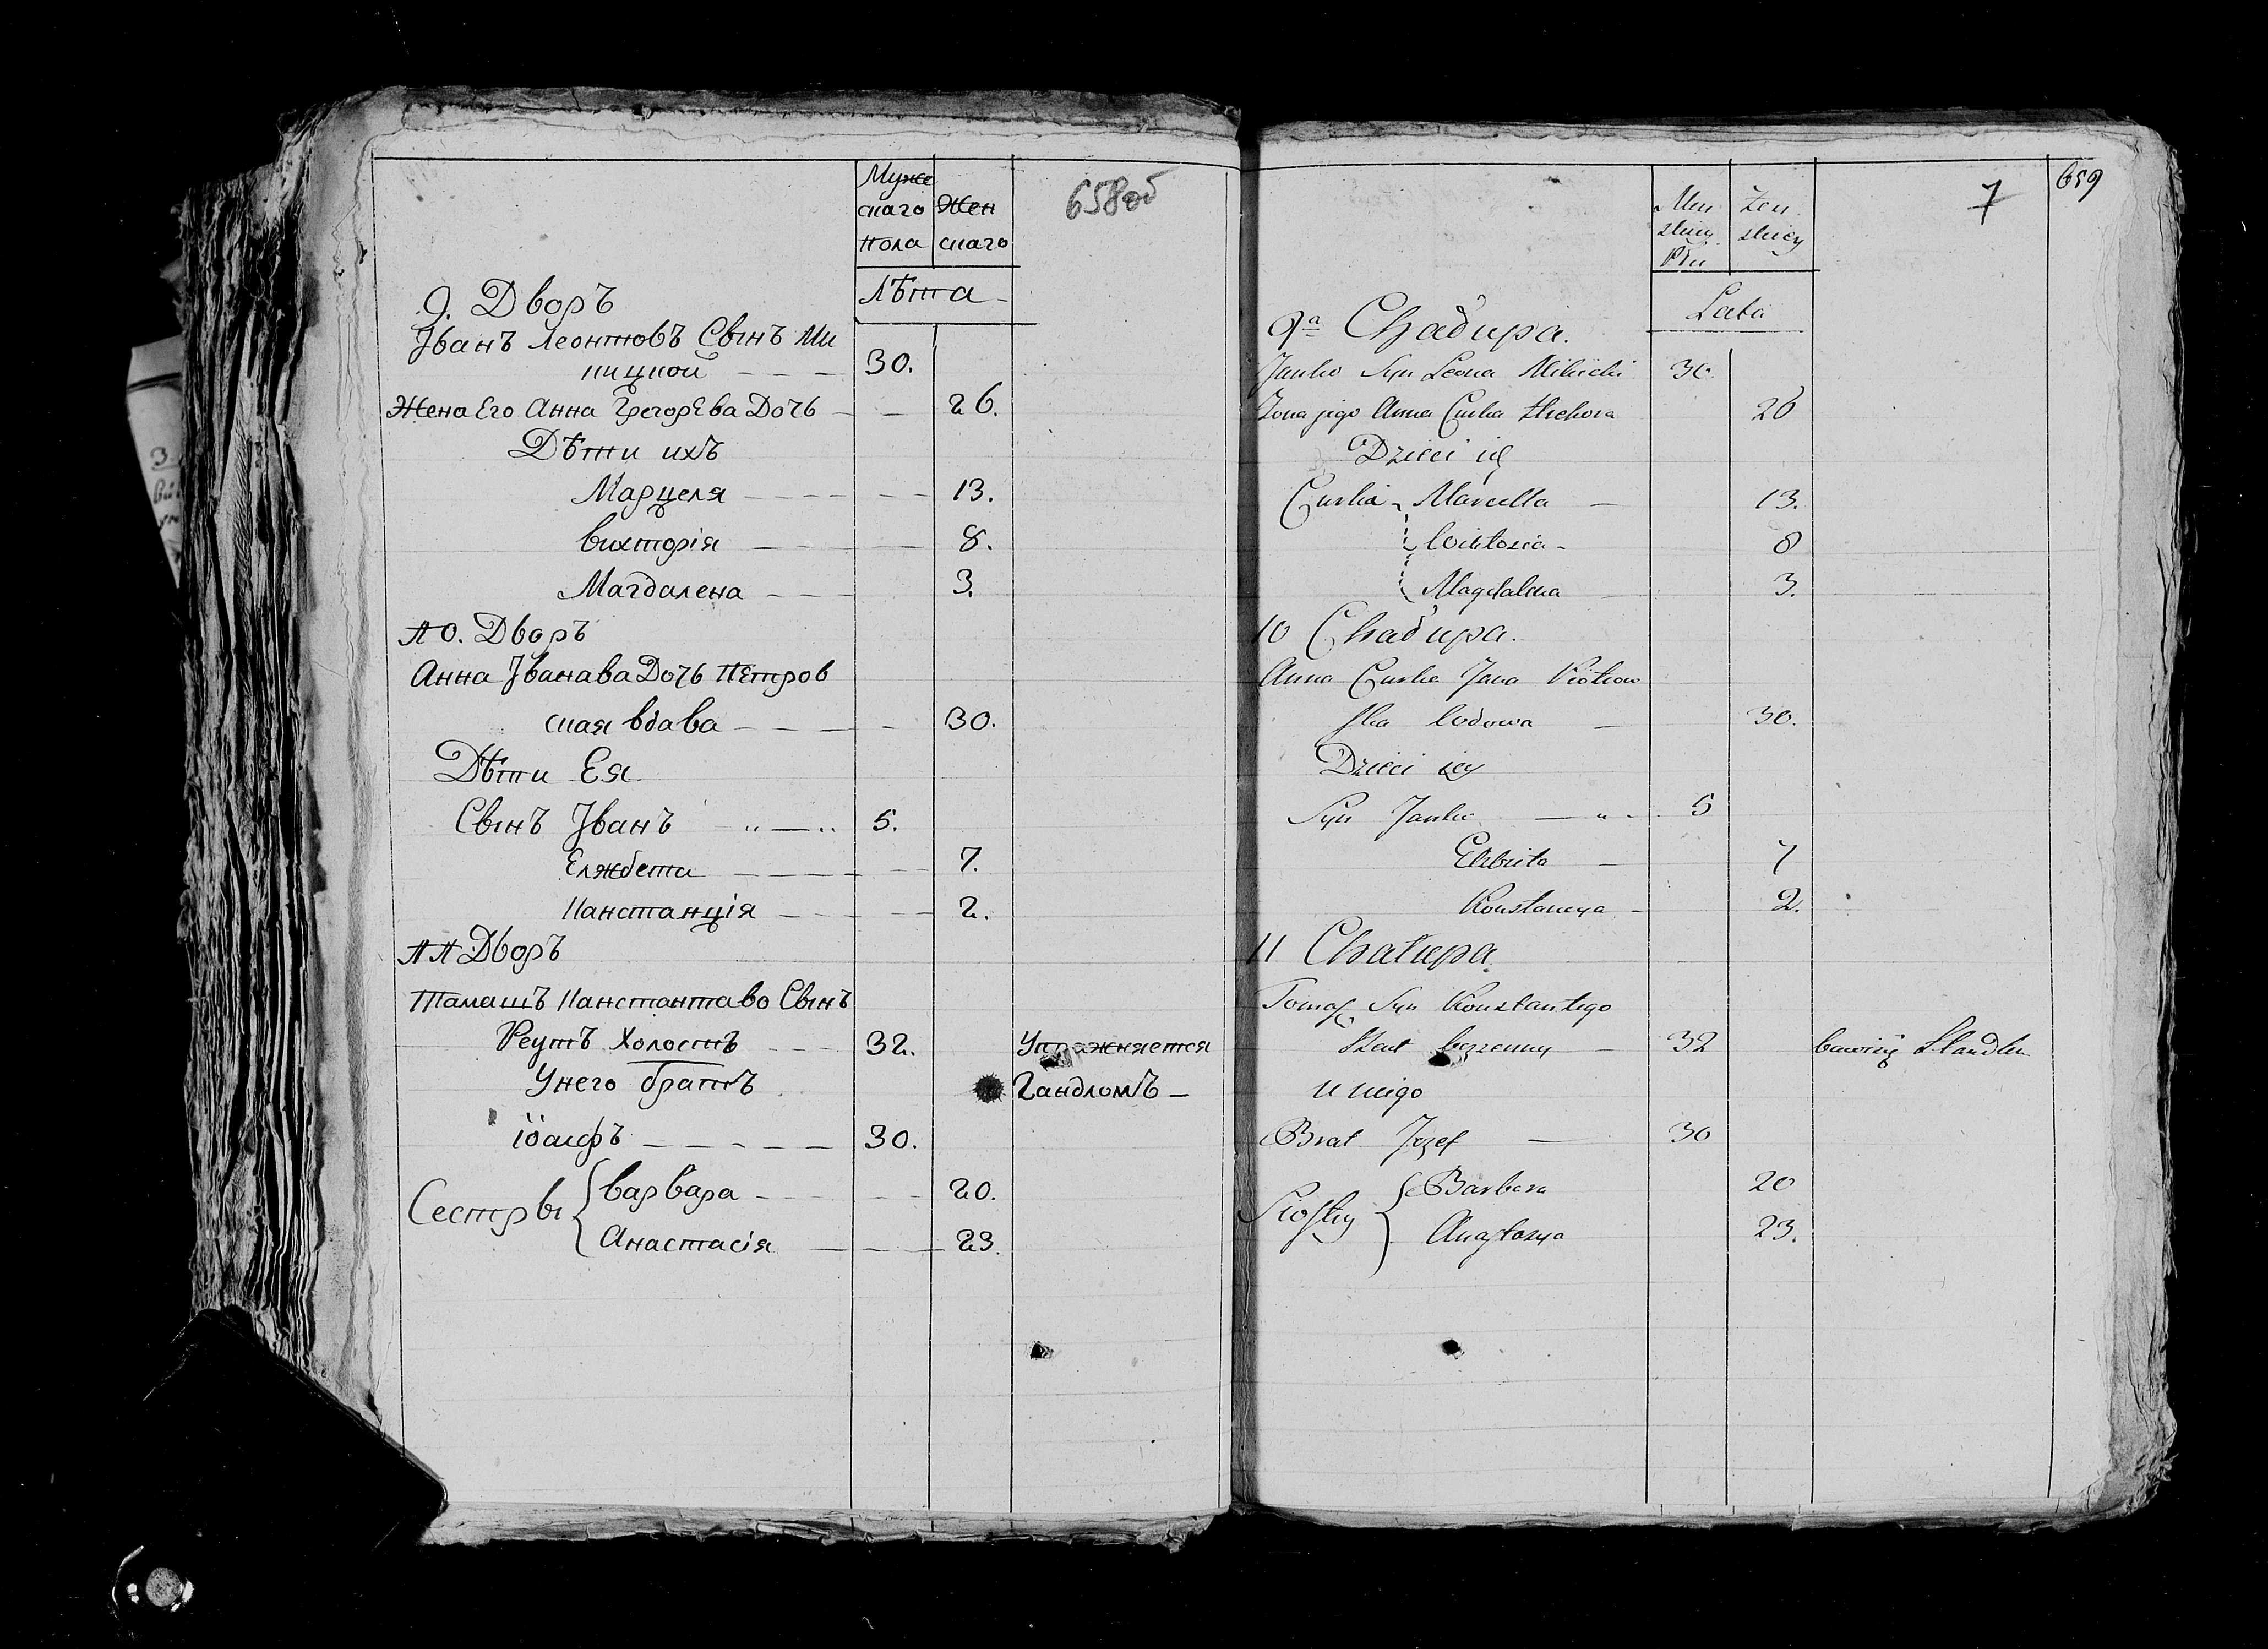 Муже
скаго
пола
Жен
скаго
658об
Лѣта
9. Дворъ
Іванъ Леонтовъ Свінъ Ми
кицкой 30.
Жена Его Анна Григорева Дочь 26.
Дѣти ихъ
Марцеля 13.
Викторія 8.
Магдалена 3.
10. Дворъ
Анна Іванава Дочь Петров
ская вдава 30.
Дѣти Ея
Свінъ Іванъ 5.
Елжбета 7.
Канстанція 2.
11 Дворъ
Тамашъ Канстантаво Свінъ
Реутъ Холостъ 32. Упражняется
Унего братъ Гандломъ
Іосифъ 30.
Сестры
Варвара 20.
Анастасія 23.
7
659
Lata
9a Chałupa.
Janko Syn Leona 30.
Żona jego Anna Curka Hrehora 26
Dzieci ich
Curka Marcella 13.
Wiktoria 8
Magdalena 3.
10 Chałupa.
Anna Curka Jana Piotrow
ska wdowa 30.
Dzieci iey
Syn Janko 5
Elżbieta 7
Konstancya 2.
11 Chałupa
Tomasz Syn Konstantego
32
u niego
Brat Jozef 30
Siostry
Barbara 20
Anastazya 23.